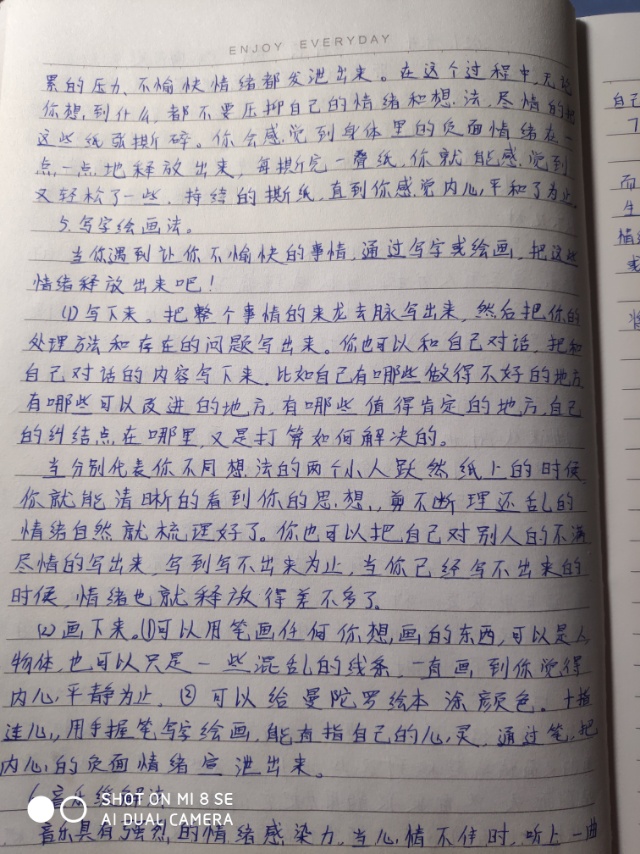 ENJOY EVERYDAY
累的压力、不愉快情绪都发泄出来。在这个过程中,无论
你想到什么,都不要压抑自己的情绪和想法,尽情的把
这些纸张撕碎。你会感觉到身体里的负面情绪在一
点一点地释放出来,每撕完一叠纸,你就能感觉到
又轻松了一些,持续的撕纸,直到你感觉内心平和了为止。
5.写字绘画法。
当你遇到让你不愉快的事情,通过写字或绘画,把这些
情绪释放出来吧!
(1)写下来。把整个事情的来龙去脉写出来,然后把你的
处理方法和存在的问题写出来。你也可以和自己对话,把和
自己对话的内容写下来,比如自己有哪些做得不好的地方,
有哪些可以改进的地方,有哪些值得肯定的地方,自己
的纠结点在哪里,又是打算如何解决的。
当分别代表你不同想法的两个小人跃然纸上的时候,
你就能清晰的看到你的思想,剪不断理还乱的
情绪自然就梳理好了。你也可以把自己对别人的不满
尽情的写出来,写到写不出来为止,当你已经写不出来的
时候,情绪也就释放得差不多了。
(2)画下来。①可以用笔画任何你想画的东西,可以是人
物体,也可以只是一些混乱的线条,一直画到你觉得
内心平静为止。②可以给曼陀罗绘本涂颜色。十指
连心,用手握笔,写字绘画,能直指自己的心灵,通过笔,把
内心的负面情绪宣泄出来。
音乐具有强烈的情绪感染力,当心情不佳时,听上一曲
SHOT ON MI 8 SE
AI DUAL CAMERA
自己
而
生
情绪